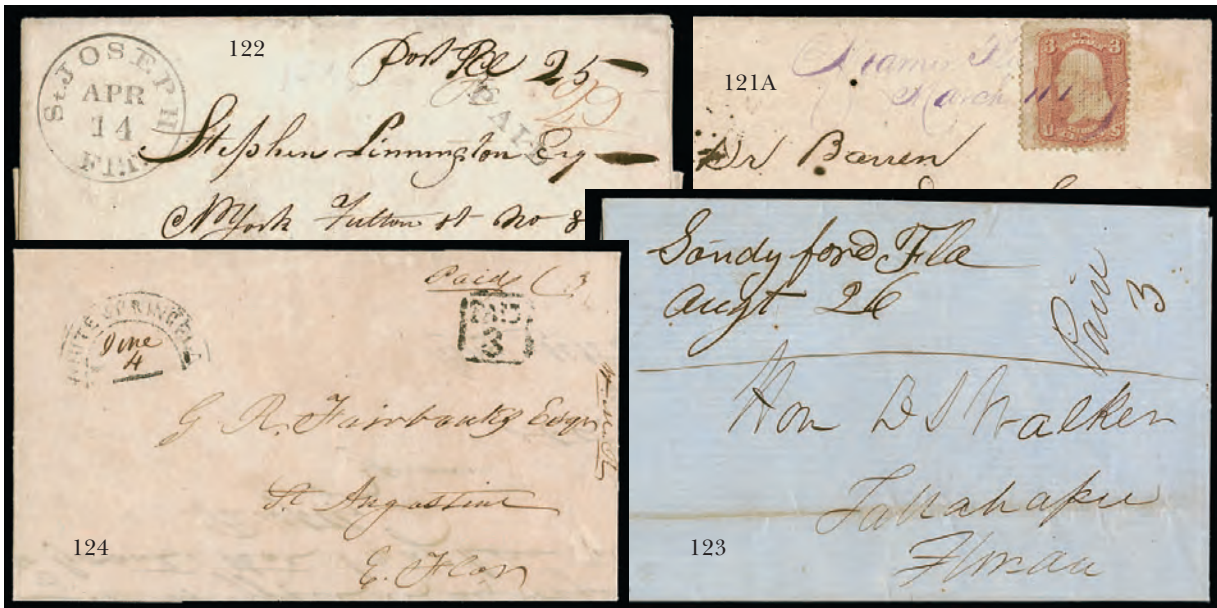 122
St. JOSEPH
APR
14
Fl.T.
25
PAID
Stephen Linnington Esq
N York Fulton st No 8
121A
March
3
3
U S
Dr Barren
124
WHITE SPRING FLA
June
4
Paid 3
PAID
3
G. R. Fairbanks Esqr
St Augustine
E. Flor
123
Sandy ford Fla
Augt 26
Paid
3
Hon D S Walker
Tallahassee
Florida